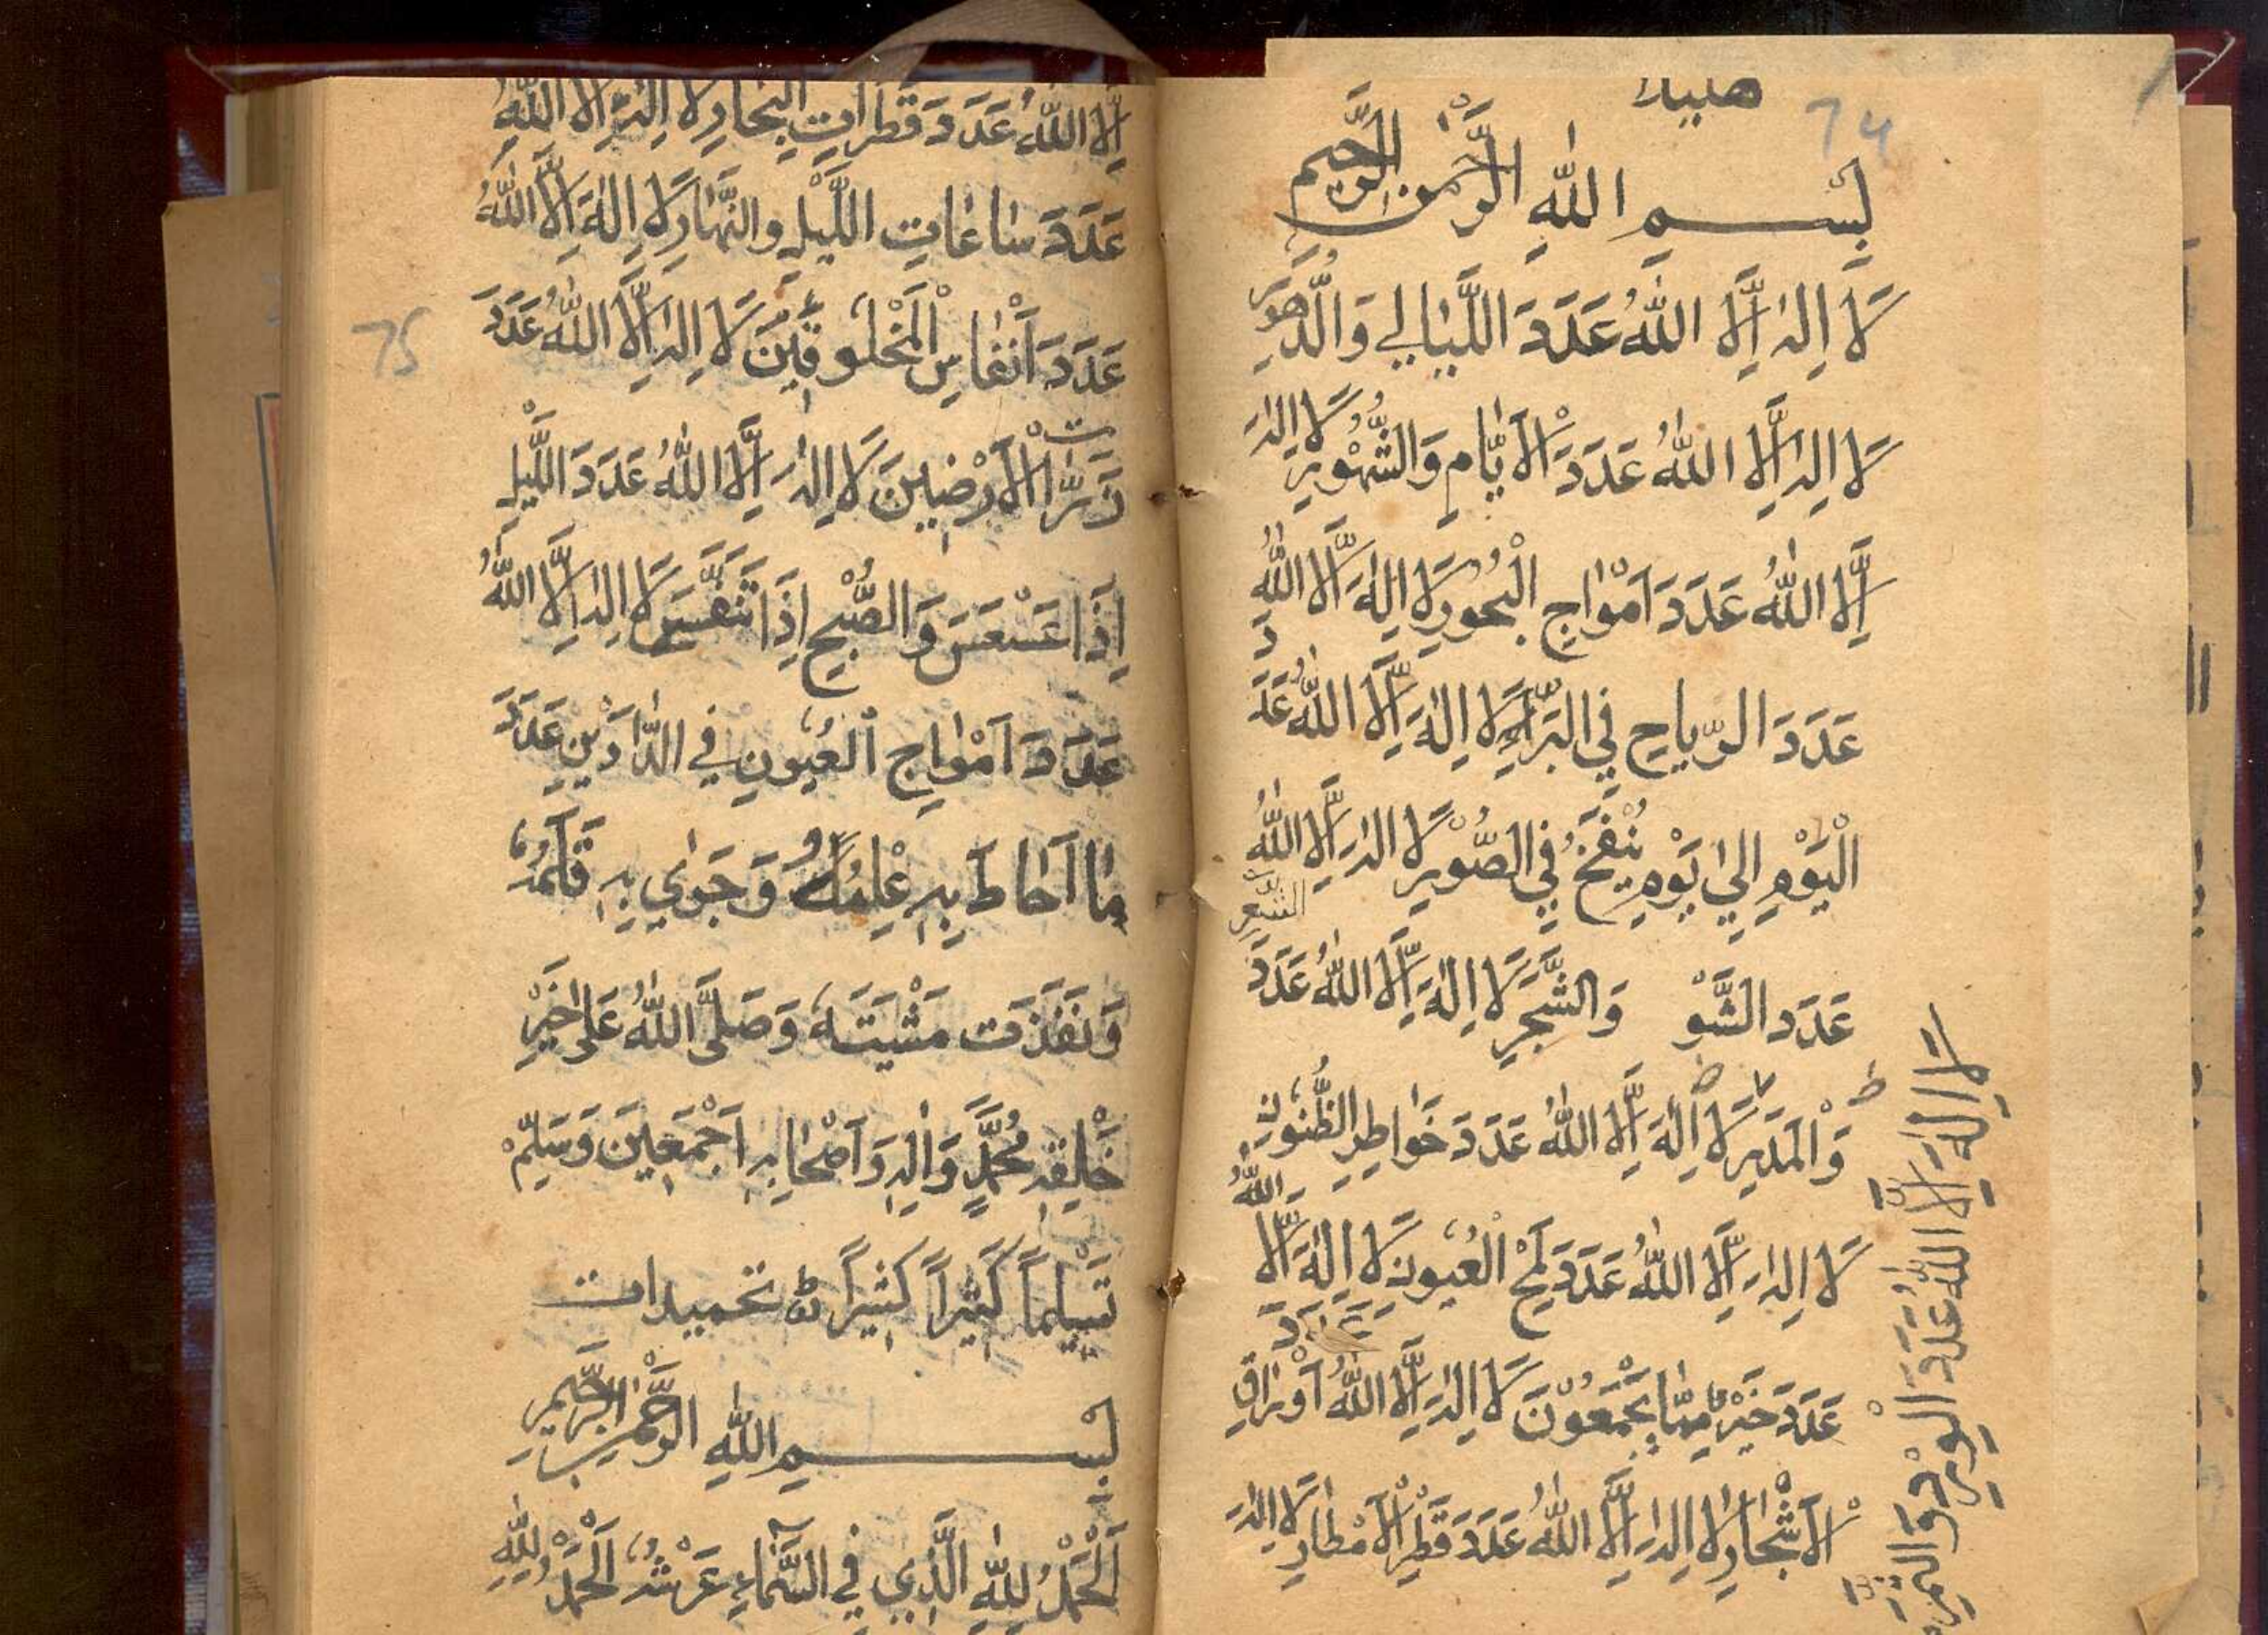 74
بِسْمِ اللّٰهِ الرَّحْمٰنِ الرَّحِيمِ
لَا اِلٰهَ اِلَّا اللّٰهُ عَدَدَ اللَّيَالِي وَالدُّهُورِ
لَا اِلٰهَ اِلَّا اللّٰهُ عَدَدَ الْاَيَّامِ وَالشُّهُورِ لَا اِلٰهَ
اِلَّا اللّٰهُ عَدَدَ اَمْوَاجِ الْبُحُورِ لَا اِلٰهَ اِلَّا اللّٰهُ
عَدَدَ الرِّيَاحِ فِي الْبَرَارِي لَا اِلٰهَ اِلَّا اللّٰهُ عَدَدَ
الْيَوْمِ اِلٰي يَوْمِ يُنْفَخُ فِي الصُّوْرِ لَا اِلٰهَ اِلَّا اللّٰهُ
عَدَدَ الشَّوْ وَالشَّجَرِ لَا اِلٰهَ اِلَّا اللّٰهُ عَدَدَ
الشَّعَرِ
وَالْمَدَرِ لَا اِلٰهَ اِلَّا اللّٰهُ عَدَدَ خَوَاطِرِ الظُّنُونِ
لَا اِلٰهَ اِلَّا اللّٰهُ عَدَدَ لَمْحِ الْعُيُونِ لَا اِلٰهَ اِلَّا اللّٰهُ
عَدَدَ خَيْرٌ مِمَّا يَجْمَعُوْنَ لَا اِلٰهَ اِلَّا اللّٰهُ عَدَدَ اَوْرَاقِ
الْاَشْجَارِ لَا اِلٰهَ اِلَّا اللّٰهُ عَدَدَ قَطْرِ الْاَمْطَارِ لَا اِلٰهَ
لَا اِلٰهَ اِلَّا اللّٰهُ عَدَدَ الْوَرْدِ وَالثَّمَرِ
اِلَّا اللّٰهُ عَدَدَ قَطَرَاتِ الْبِحَارِ لَا اِلٰهَ اِلَّا اللّٰهُ
عَدَدَ سَاعَاتِ اللَّيْلِ وَالنَّهَارِ لَا اِلٰهَ اِلَّا اللّٰهُ
75
عَدَدَ اَنْفَاسِ الْمَخْلُوقِيْنَ لَا اِلٰهَ اِلَّا اللّٰهُ عَدَدَ
ذَرَّاتِ الْاَرْضِيْنَ لَا اِلٰهَ اِلَّا اللّٰهُ عَدَدَ اللَّيْلِ
اِذَا عَسْعَسَ وَالصُّبْحِ اِذَا تَنَفَّسَ لَا اِلٰهَ اِلَّا اللّٰهُ
عَدَدَ اَمْوَاجِ الْعُيُونِ فِي الدَّارَيْنِ عَدَدَ
مَا اَحَاطَ بِهِ عِلْمُهُ وَجَرٰي بِهِ قَلَمُهُ
وَنَفَذَت مَشْيَتَهُ وَصَلَّى اللّٰهُ عَلٰى خَيْرِ
خَلْقِهِ مُحَمَّدٍ وَاٰلِهِ وَاَصْحَابِهِ اَجْمَعِيْنَ وَسَلِّمْ
تَسْلِيماً كَثِيْراً كَثِيْراً تحميدات
بِسْمِ اللّٰهِ الرَّحْمٰنِ الرَّحِيمِ
اَلْحَمْدُ لِلّٰهِ الَّذِي فِي السَّمَاءِ عَرْشُهُ اَلْحَمْدُ لِلّٰهِ